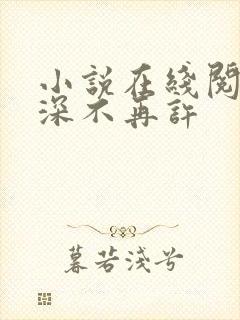 小說在綫閱
深不再許
暮若淺兮